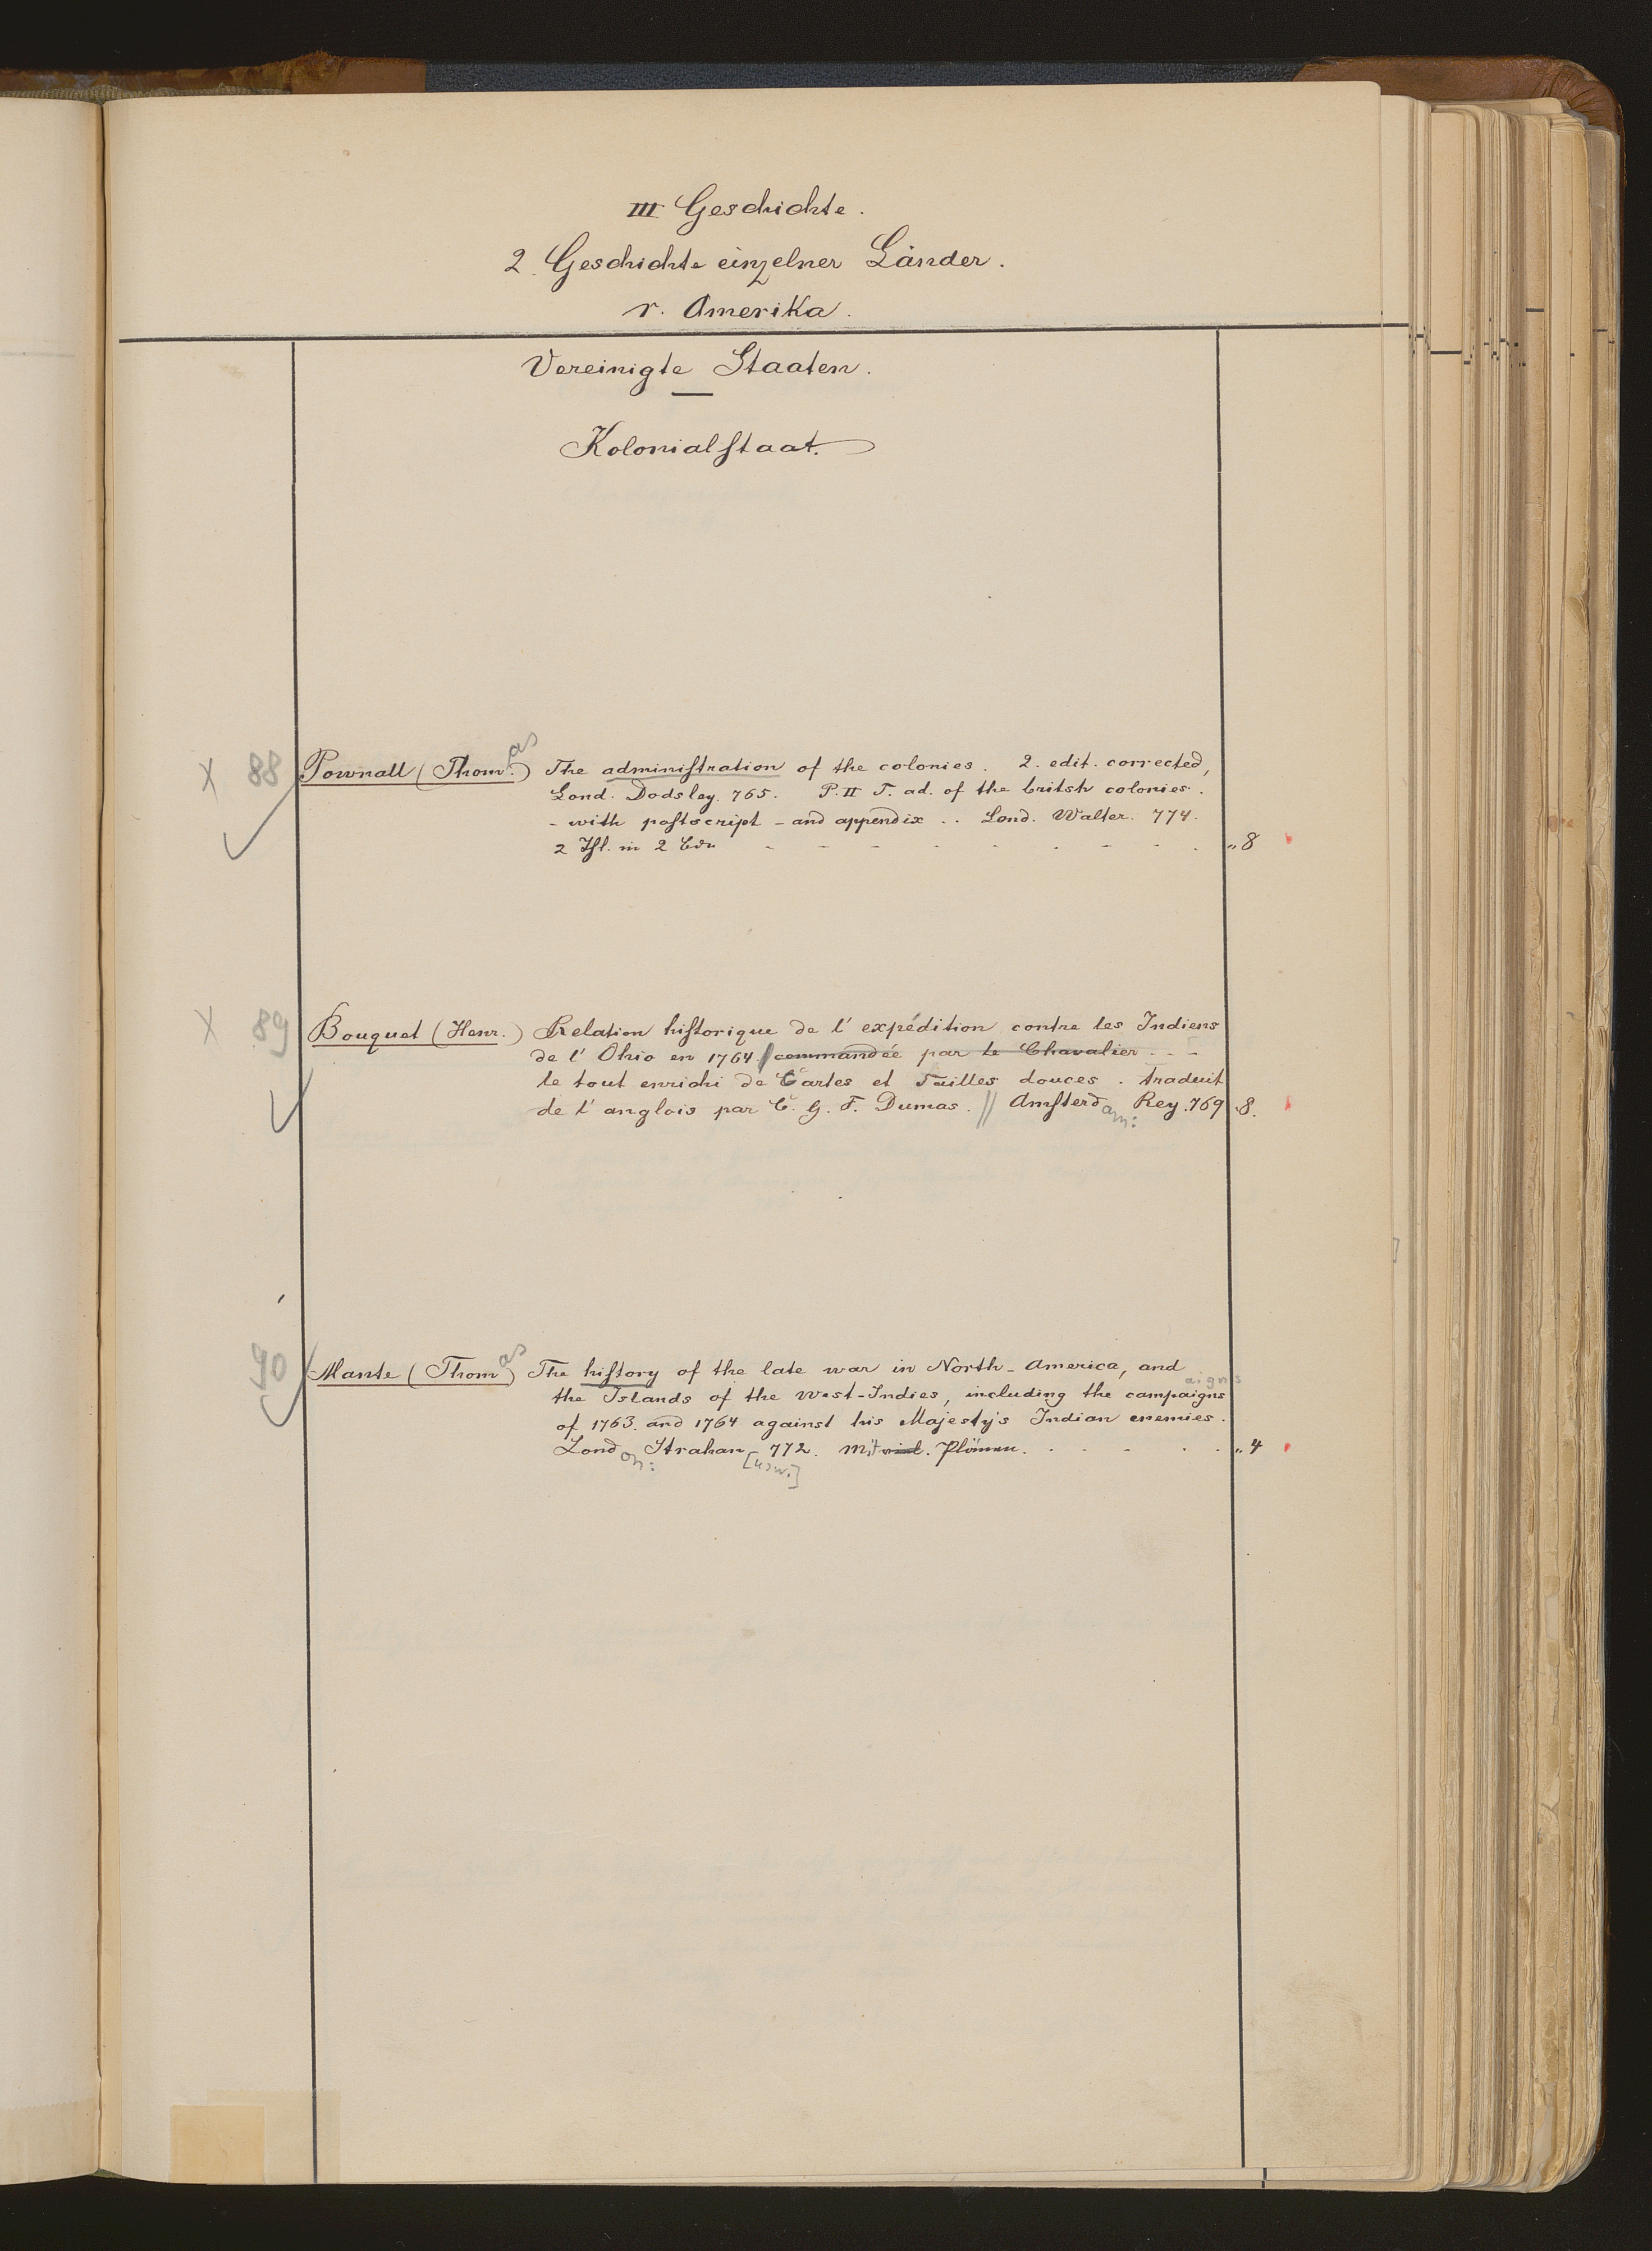 III Geschichte.
2. Geschichte einzelner Länder.
r. Amerika.
Vereinigte Staaten.
Kolonialstaat.
X 88 Pownall (Thom.as) The administration of the colonies. 2. edit. corrected,
Lond. Dodsley. 765. P. II T. ad. of the britsh colonies.
- with postscript - and appendix .. Lond. Walter. 774.
2 Thl. in 2 Bdn - - - - - - - - . „ 8
X 89 Bouquet (Henr.) Relation historique de l'expédition contre les Indiens
de l'Ohio en 1764. commandée par le Chavalier - - -
le tout enrichi de Cartes et Tailles douces. traduit
de l'anglois par C. G. F. Dumas. // Amsterdam: Rey. 769 8.
90 Mante (Thomas) The history of the late war in North-America, and
aigns
the Islands of the West-Indies, including the campaigns
of 1763. and 1764 against his Majesty's Indian enemies.
London: Strahan [usw.] 772. Mit viel. Plänen. . . - . . „ 4